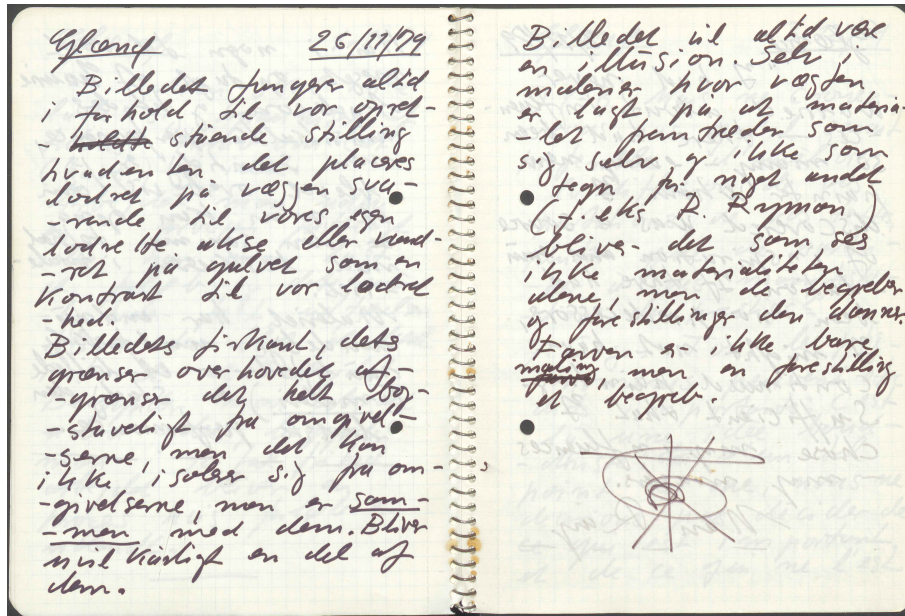 Glænø 26/11/79
Billedet fungerer altid
i forhold til vor opret-
- holdte stående stilling
hvadenten det placeres
lodret på væggen sva-
-rende til vores egen
lodrette akse eller vand-
-ret på gulvet som en
kontrast til vor lodret
-hed.
Billedets firkant, dets
grænser overhovedet af-
-grænser det helt bog-
-staveligt fra omgivel-
-serne, men det kan
ikke isolere sig fra om-
-givelserne, men er sam-
-men med dem. Bliver
uvilkårligt en del af
dem.
Billedet vil altid være
en illusion. Selv i
malerier hvor vægten
er lagt på, at materia-
-let fremtræder som
sig selv og ikke som
tegn for noget andet
(f. eks R. Ryman)
bliver det som ses
ikke materialiteten
alene, men de begreber
og forestillinger den danner.
Farven er ikke bare
maling, men en forestilling
et begreb.